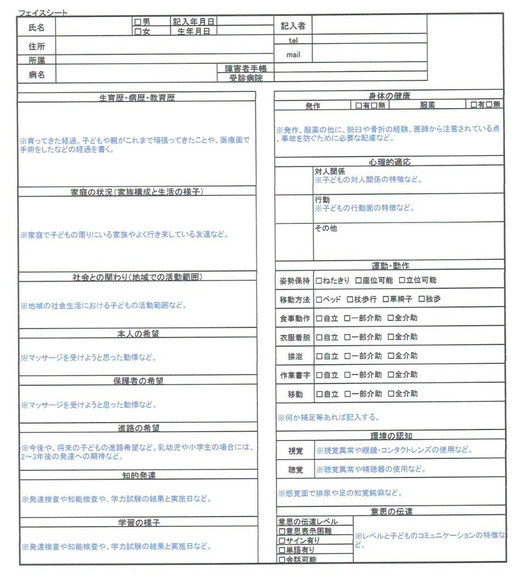 フェイスシート
氏名 □男 記入年月日 記入者
□女 生年月日
住所 tel
mail
所属
病名 障害者手帳
受診病院
生育歴・病歴・教育歴
※育ってきた経過、子どもや親がこれまで頑張ってきたことや、医療面で
手術をしたなどの経過を書く。
家庭の状況(家族構成と生活の様子)
※家庭で子どもの周りにいる家族やよく行き来している友達など。
社会との関わり(地域での活動範囲)
※地域の社会生活における子どもの活動範囲など。
本人の希望
※マッサージを受けようと思った動悸など。
保護者の希望
※マッサージを受けようと思った動悸など。
進路の希望
※今後や、将来の子どもの進路希望など。乳幼児や小学生の場合には、
2~3年後の発達への期待など。
知的発達
※発達検査や知能検査や、学力試験の結果と実施日など。
学習の様子
※発達検査や知能検査や、学力試験の結果と実施日など。
身体の健康
発作 □有□無 服薬 □有□無
※発作、服薬の他に、脱臼や骨折の経験、医師から注意されている点、
事故を防ぐために必要な配慮など。
心理的適応
対人関係
※子どもの対人関係の特徴など。
行動
※子どもの行動面の特徴など。
その他
運動・動作
姿勢保持 □ねたきり □座位可能 □立位可能
移動方法 □ベッド □杖歩行 □車椅子 □独歩
食事動作 □自立 □一部介助 □全介助
衣服着脱 □自立 □一部介助 □全介助
排泄 □自立 □一部介助 □全介助
作業書字 □自立 □一部介助 □全介助
移動 □自立 □一部介助 □全介助
※何か補足等あれば記入する。
環境の認知
視覚 ※視覚異常や眼鏡・コンタクトレンズの使用など。
聴覚 ※聴覚異常や補聴器の使用など。
※感覚面で排尿や足の知覚鈍麻など。
意思の伝達
意思の伝達レベル
□意思表示困難
□サイン有り
□単語有り
□会話可能
※レベルと子どものコミュニケーションの特徴な
ど。